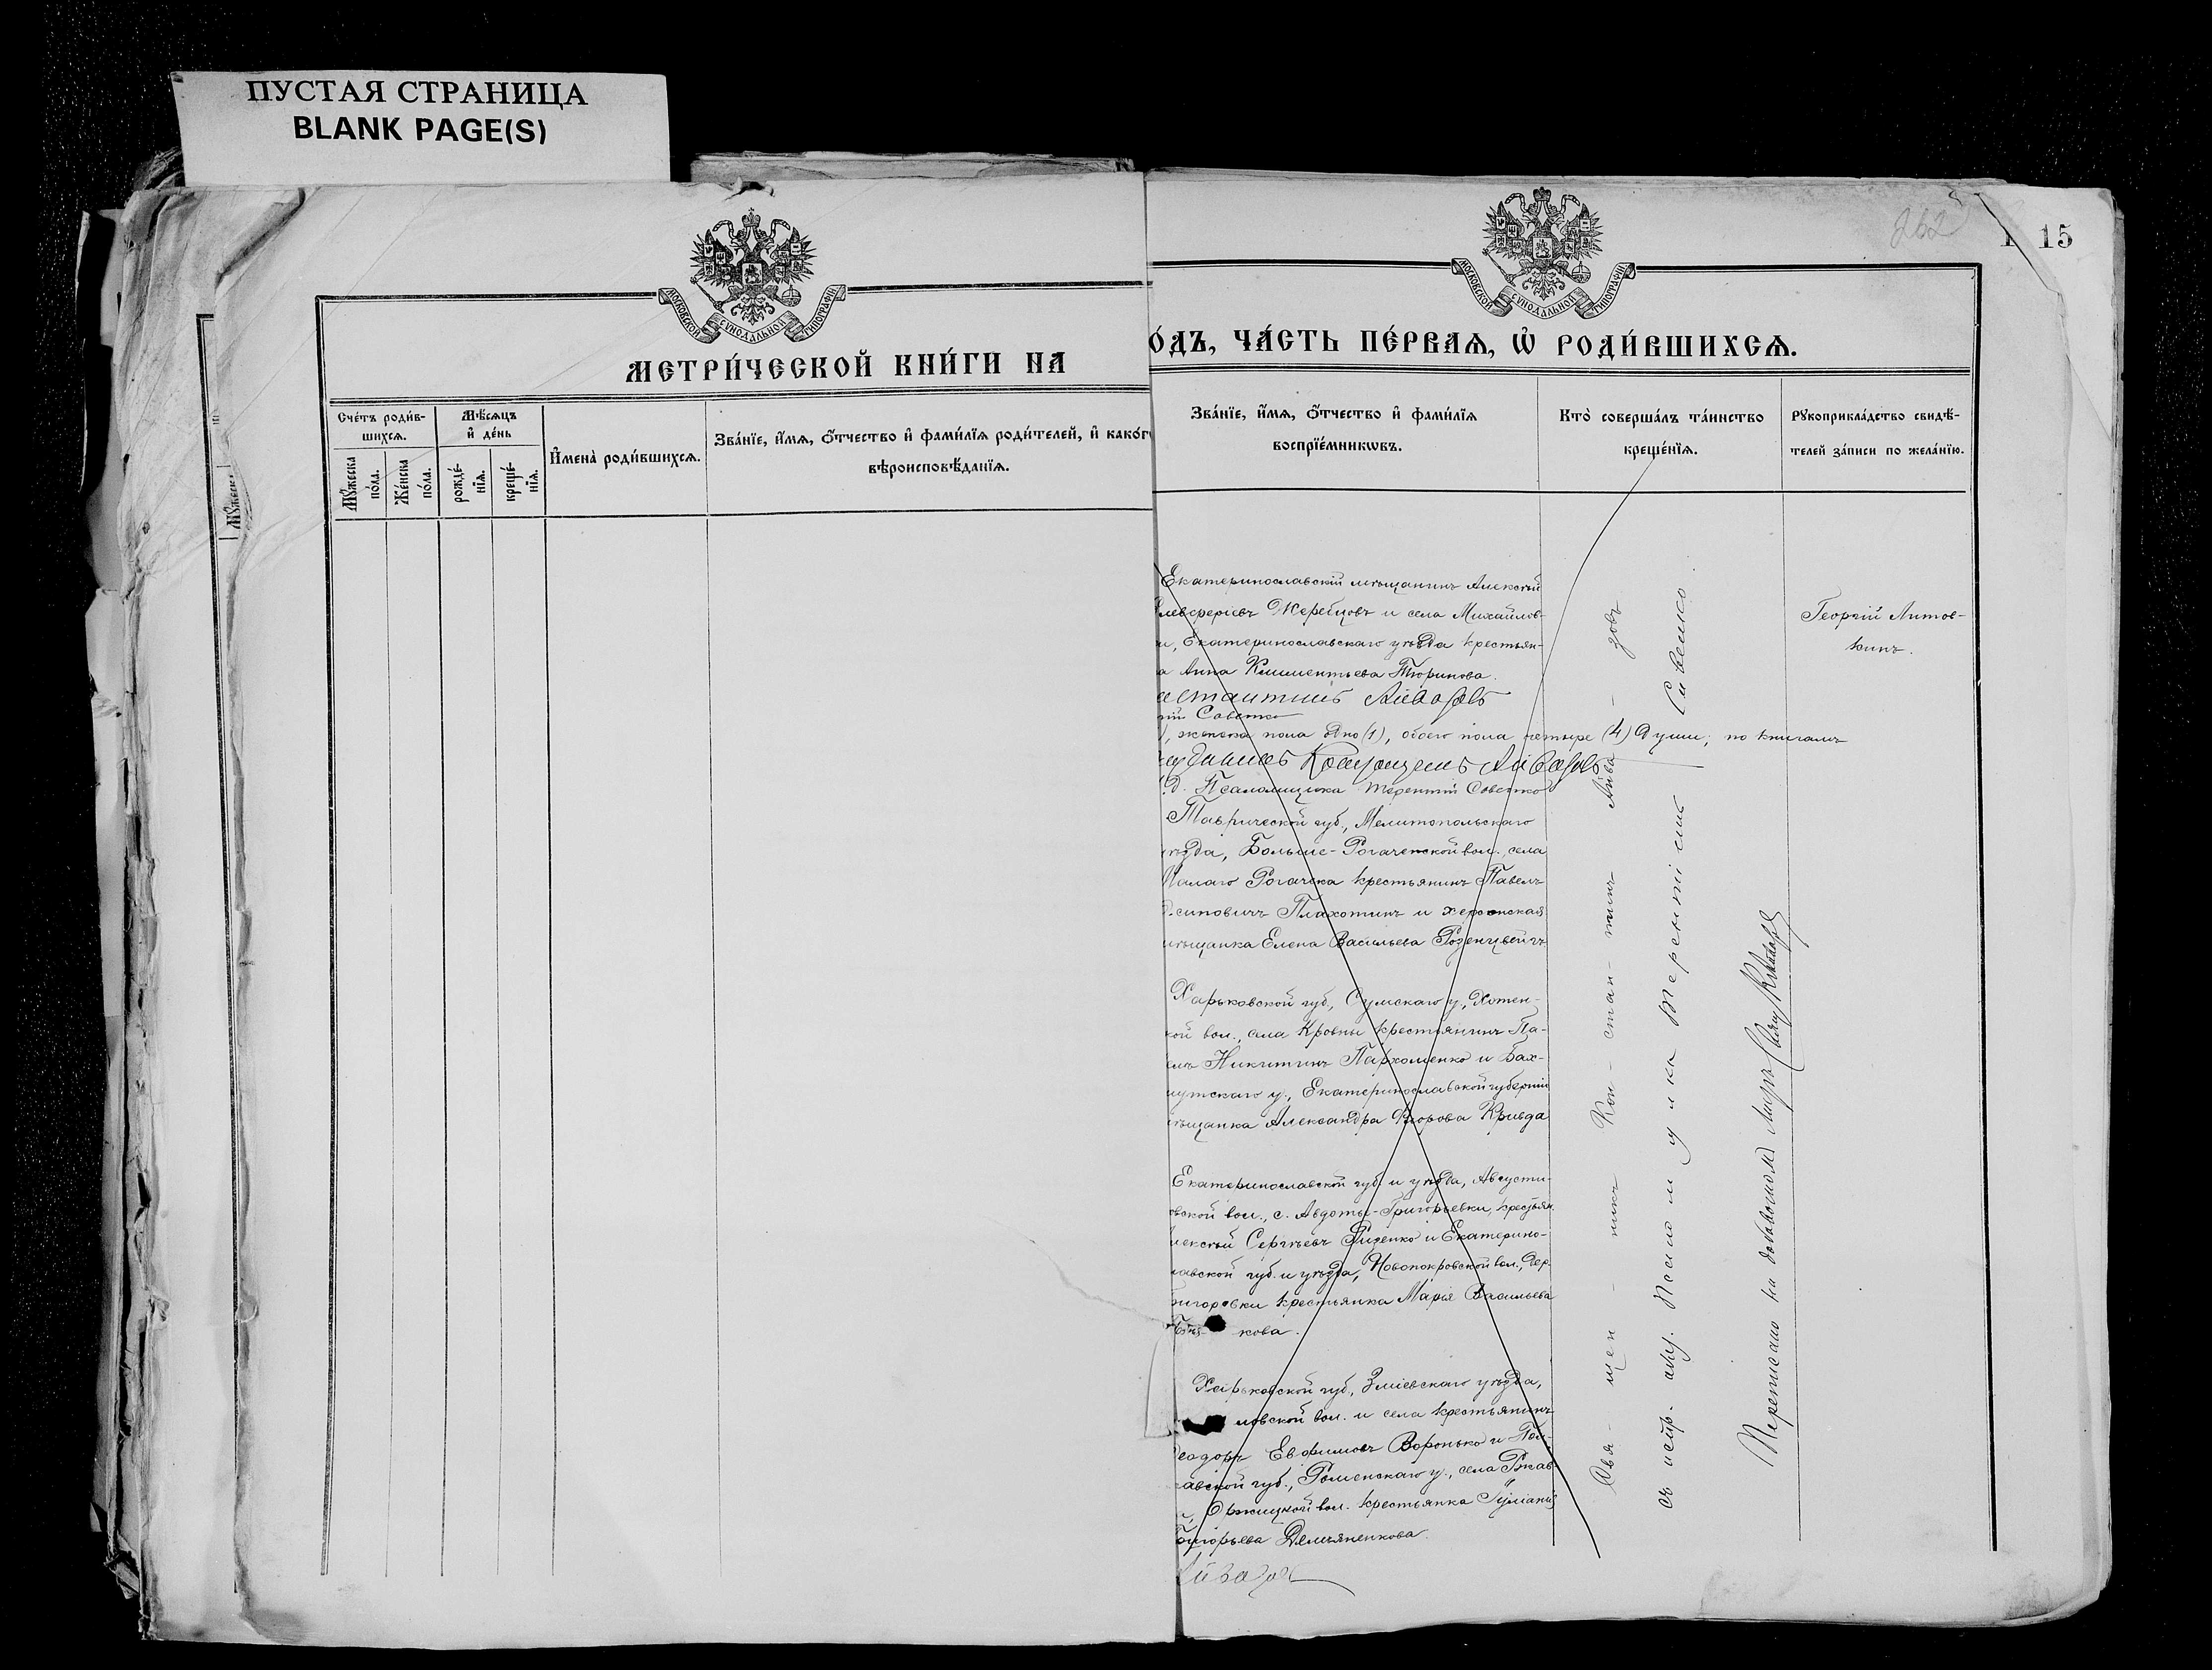 ПУСТАЯ СТРАНИЦА
BLANK PAGE(S)
МОСКОВСКОЙ СѴНОДАЛЬНОЙ ТИПОГРАФІИ
МЕТРИ́ЧЕСКОЙ КНИ́ГИ НА
Сче́тъ роди́в-
шихсѧ.
Мѣ́сѧцъ
и҆ де́нь
И҆мена̀ роди́вшихсѧ.
Зва́нїе, и҆́мѧ, ѻ҆́тчество и҆ фами́лїѧ роди́телей, и҆ како́г
вѣроисповѣ́данїѧ.
Мꙋ́жеска
по́ла.
Же́нска
по́ла.
рожде́-
нїѧ.
креще́-
нїѧ.
262
15
МОСКОВСКОЙ СѴНОДАЛЬНОЙ ТИПОГРАФІИ
О́ДЪ, ЧА́СТЬ ПЕ́РВАѦ, Ѡ҆ РОДИ́ВШИХСѦ.
Зва́нїе, и҆́мѧ, ѻ҆́тчество и҆ фами́лїѧ
воспрїе́мникѡвъ.
Кто̀ соверша́лъ та́инство
креще́нїѧ.
Рꙋкоприкла́дство свидѣ́-
телей за́писи по жела́нїю.
Екатеринославскій мѣщанинъ Алексѣй
Елевѳеріевъ Жеребцовъ и села Михайлов-
и, Екатеринославскаго уѣзда крестьян-
а Анна Климентьева Тюринова.
Айвазовъ
, женска пола одно (1), обоего пола четыре (4) души; по книгамъ
Айвазовъ
.д. Псаломщика Терентій
Таврической губ., Мелитопольскаго
уѣзда, Больше-Рогачекской вол., села
Малаго Рогачека крестьянинъ Павелъ
Осиповичъ Плахотинъ и херсонская
мѣщанка Елена Васильева Розенцвейгъ
Харьковской губ., Сумскаго у., Хотен-
кой вол., села Кровны крестьянинъ Па-
елъ Никитинъ Пархоменко и Бах-
мутскаго у., Екатеринославской губерніи
мѣщанка Александра Ѳеорова Кривда
Екатеринославской губ. и уѣзда, Августи-
овской вол., с. Авдотьи-Григорьевки, крестьян.
лексѣй Сергѣевъ Ризенко и Екатерино-
лавской губ. и уѣзда, Новопокровской вол., дер.
Григоровки крестьянка Марія Васильева
кова.
Харьковской губ., Зміевскаго уѣзда,
ловской вол. и села крестьянинъ
Ѳеодоръ Евѳимовъ Воронько и Пол-
тавской губ., Роменскаго у., села Ржав-
Оржицкой вол. крестьянка Іуліанія
Григорьева Демьяненкова.
Айвазовъ
Свя - щен - никъ Кон - стан - тинъ Айва - зовъ
съ испр. долж. Псаломщика Терентіемъ
Переписано на
Георгій Литов-
кинъ.